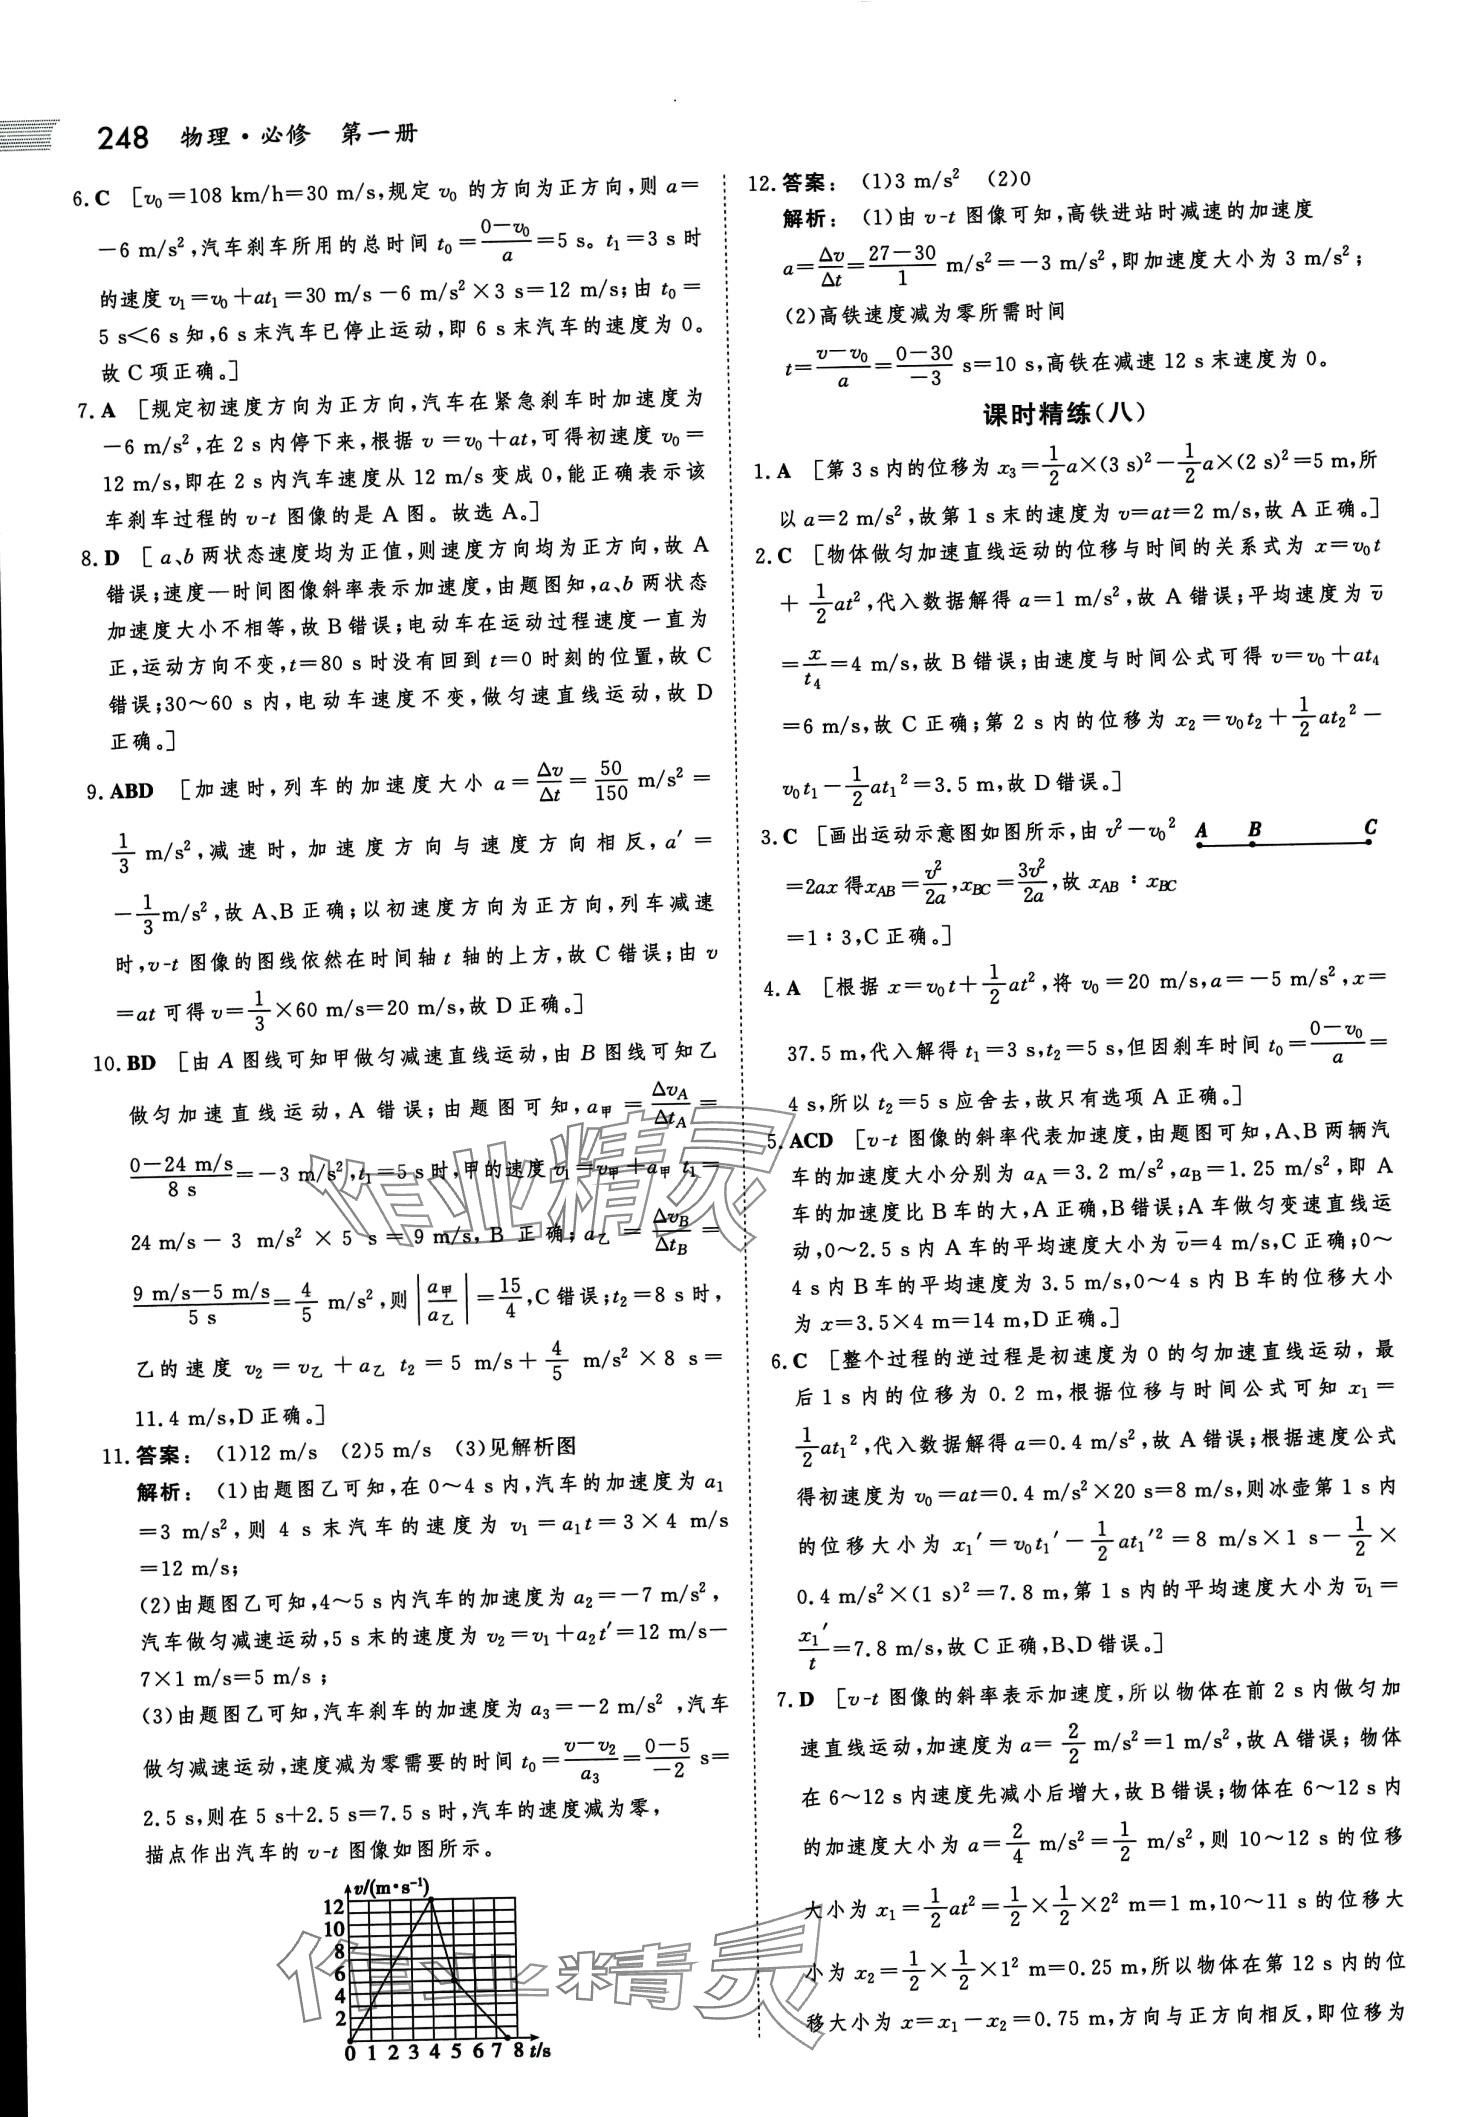 248 物理·必修 第一册
6.C [v₀=108 km/h=30 m/s,规定 v₀ 的方向为正方向,则 a=
-6 m/s²,汽车刹车所用的总时间 t₀=(0-v₀)/a=5 s。t₁=3 s时
的速度 v₁=v₀+at₁=30 m/s-6 m/s²×3 s=12 m/s;由 t₀=
5 s<6 s 知,6 s末汽车已停止运动,即 6 s末汽车的速度为 0。
故 C 项正确。]
7.A [规定初速度方向为正方向,汽车在紧急刹车时加速度为
-6 m/s²,在 2 s内停下来,根据 v=v₀+at,可得初速度 v₀=
12 m/s,即在 2 s内汽车速度从 12 m/s 变成 0,能正确表示该
车刹车过程的 v-t 图像的是 A 图。故选 A。]
8.D [a、b 两状态速度均为正值,则速度方向均为正方向,故 A
错误;速度—时间图像斜率表示加速度,由题图知,a、b 两状态
加速度大小不相等,故 B 错误;电动车在运动过程速度一直为
正,运动方向不变,t=80 s时没有回到 t=0 时刻的位置,故 C
错误;30～60 s内,电动车速度不变,做匀速直线运动,故 D
正确。]
9.ABD [加速时,列车的加速度大小 a=Δv/Δt=50/150 m/s²=
1/3 m/s²,减速时,加速度方向与速度方向相反,a′=
-1/3 m/s²,故 A、B 正确;以初速度方向为正方向,列车减速
时,v-t 图像的图线依然在时间轴 t 轴的上方,故 C 错误;由 v
=at 可得 v=1/3×60 m/s=20 m/s,故 D 正确。]
10.BD [由 A 图线可知甲做匀减速直线运动,由 B 图线可知乙
做匀加速直线运动,A 错误;由题图可知,a甲=Δv_A/Δt_A=
(0-24 m/s)/(8 s)=-3 m/s²,t₁=5 s时,甲的速度 v₁=v甲+a甲 t₁=
24 m/s-3 m/s²×5 s=9 m/s,B 正确;a乙=Δv_B/Δt_B=
(9 m/s-5 m/s)/(5 s)=4/5 m/s²,则|a甲/a乙|=15/4,C错误;t₂=8 s时,
乙的速度 v₂=v乙+a乙 t₂=5 m/s+4/5 m/s²×8 s=
11.4 m/s,D 正确。]
11.答案: (1)12 m/s (2)5 m/s (3)见解析图
解析: (1)由题图乙可知,在 0～4 s内,汽车的加速度为 a₁
=3 m/s²,则 4 s末汽车的速度为 v₁=a₁t=3×4 m/s
=12 m/s;
(2)由题图乙可知,4～5 s内汽车的加速度为 a₂=-7 m/s²,
汽车做匀减速运动,5 s末的速度为 v₂=v₁+a₂t′=12 m/s-
7×1 m/s=5 m/s;
(3)由题图乙可知,汽车刹车的加速度为 a₃=-2 m/s²,汽车
做匀减速运动,速度减为零需要的时间 t₀=(v-v₂)/a₃=(0-5)/(-2) s=
2.5 s,则在 5 s+2.5 s=7.5 s时,汽车的速度减为零,
描点作出汽车的 v-t 图像如图所示。
v/(m·s⁻¹)
12
10
8
6
4
2
0 1 2 3 4 5 6 7 8 t/s
12.答案: (1)3 m/s² (2)0
解析: (1)由 v-t 图像可知,高铁进站时减速的加速度
a=Δv/Δt=(27-30)/1 m/s²=-3 m/s²,即加速度大小为 3 m/s²;
(2)高铁速度减为零所需时间
t=(v-v₀)/a=(0-30)/(-3) s=10 s,高铁在减速 12 s末速度为 0。
课时精练(八)
1.A [第 3 s内的位移为 x₃=1/2a×(3 s)²-1/2a×(2 s)²=5 m,所
以 a=2 m/s²,故第 1 s末的速度为 v=at=2 m/s,故 A 正确。]
2.C [物体做匀加速直线运动的位移与时间的关系式为 x=v₀t
+1/2at²,代入数据解得 a=1 m/s²,故 A 错误;平均速度为 v̄
=x/t₄=4 m/s,故 B 错误;由速度与时间公式可得 v=v₀+at₄
=6 m/s,故 C 正确;第 2 s内的位移为 x₂=v₀t₂+1/2at₂²-
v₀t₁-1/2at₁²=3.5 m,故 D 错误。]
3.C [画出运动示意图如图所示,由 v²-v₀²
A B C
=2ax 得x_AB=v²/2a,x_BC=3v²/2a,故 x_AB∶x_BC
=1∶3,C 正确。]
4.A [根据 x=v₀t+1/2at²,将 v₀=20 m/s,a=-5 m/s²,x=
37.5 m,代入解得 t₁=3 s,t₂=5 s,但因刹车时间 t₀=(0-v₀)/a=
4 s,所以 t₂=5 s应舍去,故只有选项 A 正确。]
5.ACD [v-t 图像的斜率代表加速度,由题图可知,A、B 两辆汽
车的加速度大小分别为 a_A=3.2 m/s²,a_B=1.25 m/s²,即 A
车的加速度比 B车的大,A 正确,B 错误;A 车做匀变速直线运
动,0～2.5 s内 A 车的平均速度大小为 v̄=4 m/s,C 正确;0～
4 s内 B 车的平均速度为 3.5 m/s,0～4 s内 B 车的位移大小
为 x=3.5×4 m=14 m,D 正确。]
6.C [整个过程的逆过程是初速度为 0 的匀加速直线运动,最
后 1 s内的位移为 0.2 m,根据位移与时间公式可知 x₁=
1/2at₁²,代入数据解得 a=0.4 m/s²,故 A 错误;根据速度公式
得初速度为 v₀=at=0.4 m/s²×20 s=8 m/s,则冰壶第 1 s内
的位移大小为 x₁′=v₀t₁′-1/2at₁′²=8 m/s×1 s-1/2×
0.4 m/s²×(1 s)²=7.8 m,第 1 s内的平均速度大小为 v̄₁=
x₁′/t=7.8 m/s,故 C 正确,B、D 错误。]
7.D [v-t 图像的斜率表示加速度,所以物体在前 2 s内做匀加
速直线运动,加速度为 a=2/2 m/s²=1 m/s²,故 A 错误;物体
在 6～12 s内速度先减小后增大,故 B 错误;物体在 6～12 s内
的加速度大小为 a=2/4 m/s²=1/2 m/s²,则 10～12 s的位移
大小为 x₁=1/2at²=1/2×1/2×2² m=1 m,10～11 s的位移大
小为 x₂=1/2×1/2×1² m=0.25 m,所以物体在第 12 s内的位
移大小为 x=x₁-x₂=0.75 m,方向与正方向相反,即位移为
作业精灵
作业精灵